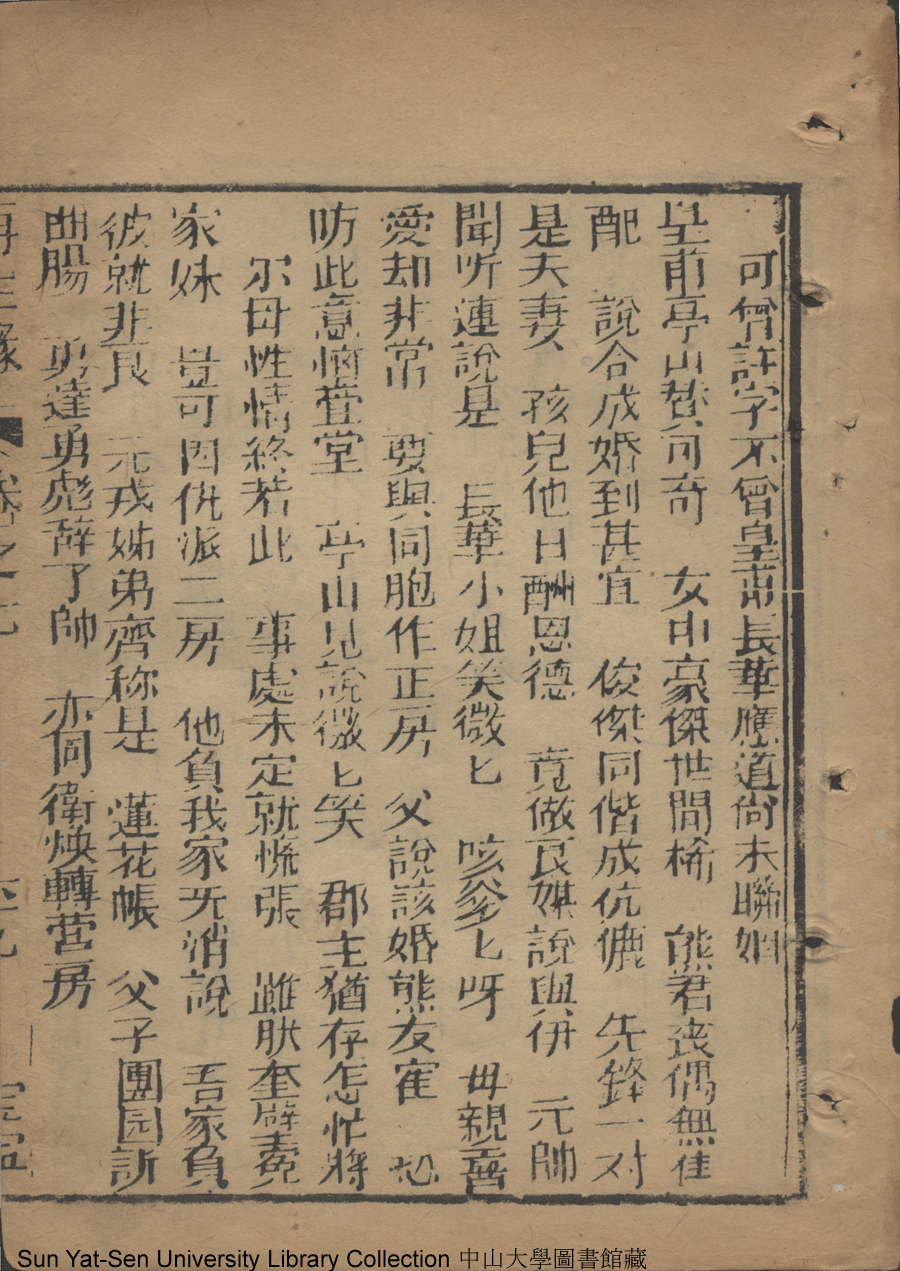 可曾許字不曾皇甫長華應道尚未聯姻
皇甫亭山贊可奇　女中豪傑世間稀　熊君喪偶無佳
配　說合成婚到甚宜　俊傑同偕成伉儷　先鋒一对
是夫妻　孩兒他日酬恩德　竟做良媒說與伊　元帥
聞听連說是　長華小姐笑微匕　咳爹匕呀　毋親喜
愛却非常　要與同胞作正房　父說該婚熊友寉　恐
防此意惱萱堂　亭山見說微匕笑　郡主猶存怎忙將
尔母性情終若此　事處未定就慌張　雖肰奎璧冤
家妹　豈可因仇派二房　他負我家旡消說　吾家負
彼就非良　元戎姊弟齊称是　蓮花帳　父子團园訴
曲腸　勇達勇彪辞了帥　亦同衛煥轉营房
再生緣　卷之
Sun Yat-Sen University Library Collection 中山大學圖書館藏